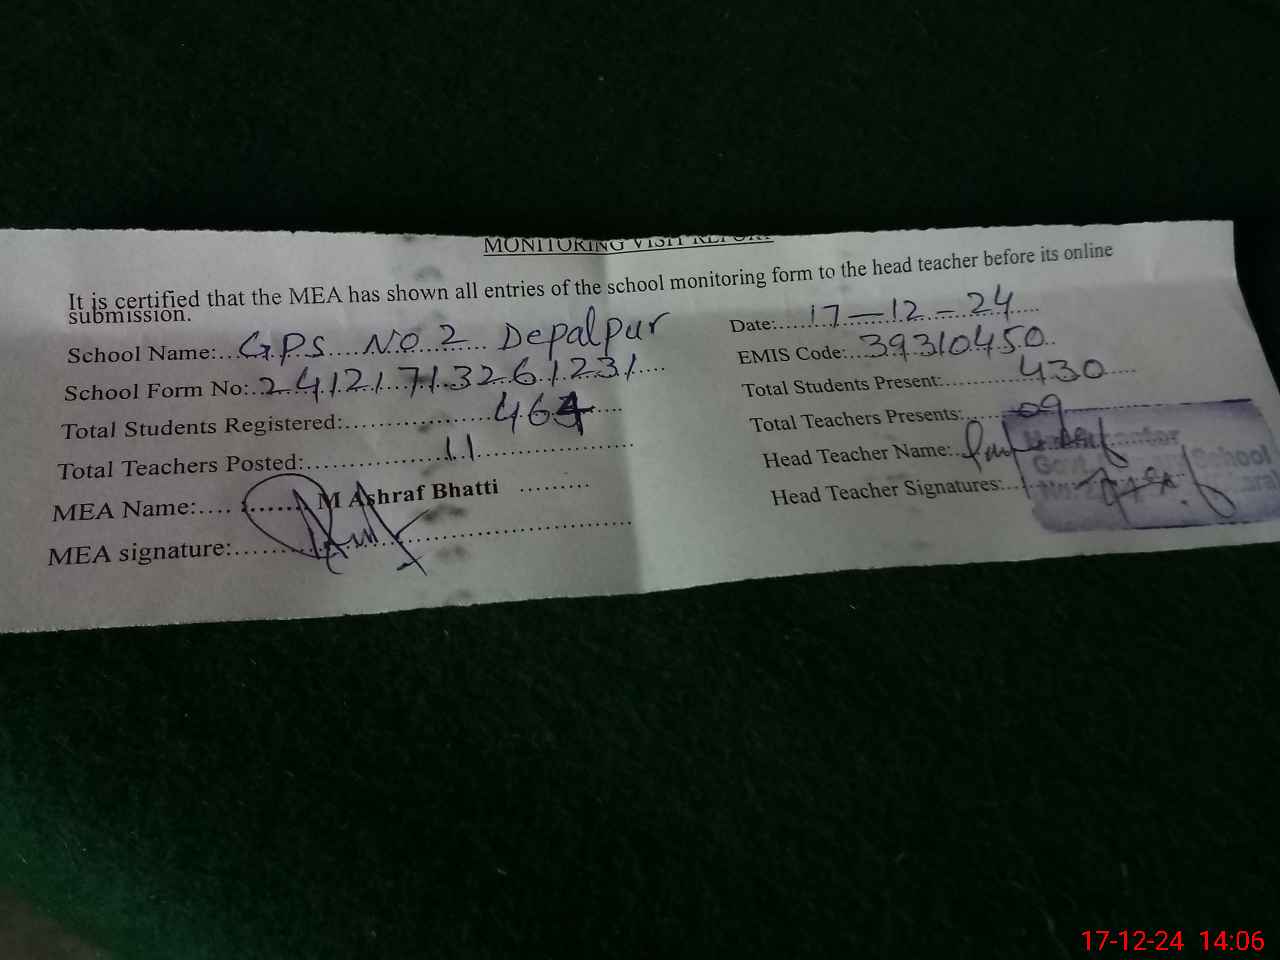 MONITORING VISIT REPORT
It is certified that the MEA has shown all entries of the school monitoring form to the head teacher before its online
submission.
School Name:...GPS NO 2 Depalpur
Date:.....17-12-24
School Form No:..24121713261231
EMIS Code:...39310450
Total Students Registered:.................464
Total Students Present:............430
Total Teachers Posted:................11
Total Teachers Presents:......09
MEA Name:.... M Ashraf Bhatti
Head Teacher Name:
MEA signature:
Head Teacher Signatures:
School
17-12-24 14:06